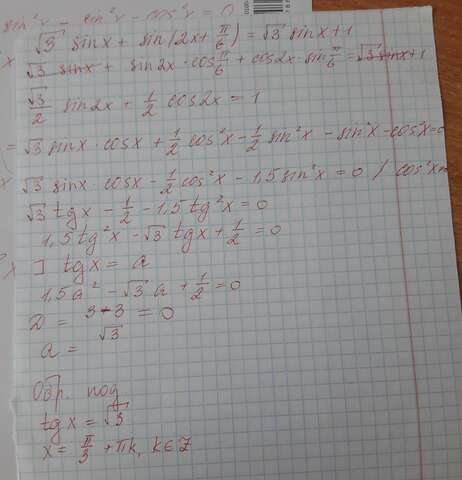 sin²x - sin²x - cos²x = 0
√3 sinx + sin(2x + π/6) = √3 sinx + 1
√3 sinx + sin2x · cos π/6 + cos2x · sin π/6 = √3 sinx + 1
√3/2 sin2x + 1/2 cos2x = 1
= √3 sinx · cosx + 1/2 cos²x - 1/2 sin²x - sin²x - cos²x = 0
√3 sinx · cosx - 1/2 cos²x - 1,5 sin²x = 0 / cos²x
√3 tgx - 1/2 - 1,5 tg²x = 0
1,5 tg²x - √3 tgx + 1/2 = 0
] tgx = a
1,5a² - √3 a + 1/2 = 0
D = 3 - 3 = 0
a = √3
Обр. под
tgx = √3
x = π/3 + πk, k ∈ Z